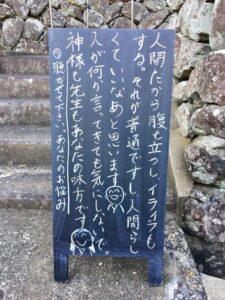 人間だから腹も立つし、イライラも
する。それが普通ですし、人間らし
くていいなあと思います
人が何か言ってきても気にしないで。
神様も先生もあなたの味方です
聴かせて下さい、あなたのお悩み